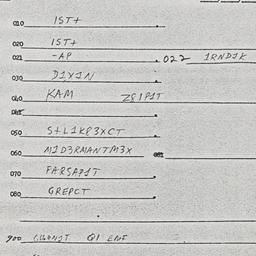 010 IST+
020 IST+
021 -AP . 022 1RND1K
030 D1X1N
040 KAM Z81P1T
050 S+L1KP3XCT
060 M1D3RMANTM3X
070 FARSAP1T
080 GREPCT
900 Q1 ENF